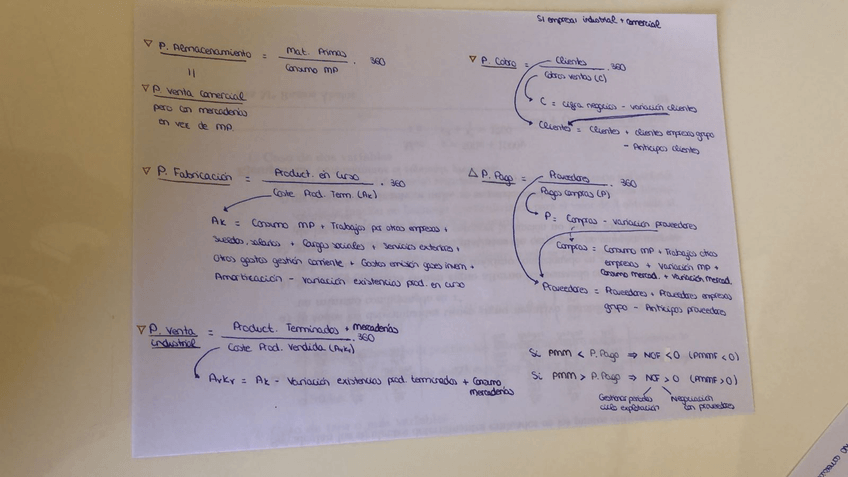 Si empresa industrial + comercial
▽ P. Almacenamiento = Mat. Primas / Consumo MP . 360
||
▽ P. venta comercial
pero con mercaderías
en vez de MP.
▽ P. Fabricación = Product. en curso / Coste Prod. Term. (Ak) . 360
Ak = Consumo MP + Trabajos por otras empresas +
sueldos, salarios + Cargas sociales + Servicios exteriores +
Otros gastos gestión corriente + Gastos emisión gases invern. +
Amortización - Variación existencias prod. en curso
▽ P. Venta industrial = Product. Terminados + mercaderías / Coste Prod. Vendida (ArKr) . 360
ArKr = Ak - Variación existencias prod. terminados + Consumo
mercaderías
▽ P. Cobro = Clientes / Cobros ventas (C) . 360
C = cifra negocios - variación clientes
Clientes = Clientes + clientes empresas grupo
- Anticipos clientes
△ P. Pago = Proveedores / Pagos compras (P) . 360
P = Compras - variación proveedores
Compras = Consumo MP + Trabajos otras
empresas + Variación MP +
Consumo mercad. + variación mercad.
Proveedores = Proveedores + Proveedores empresas
grupo - Anticipos proveedores
Si PMM < P. Pago ⇒ NOF < 0 (PMMF < 0)
Si PMM > P. Pago ⇒ NOF > 0 (PMMF > 0)
Gestionar periodos
ciclo explotación
Negociación
con proveedores